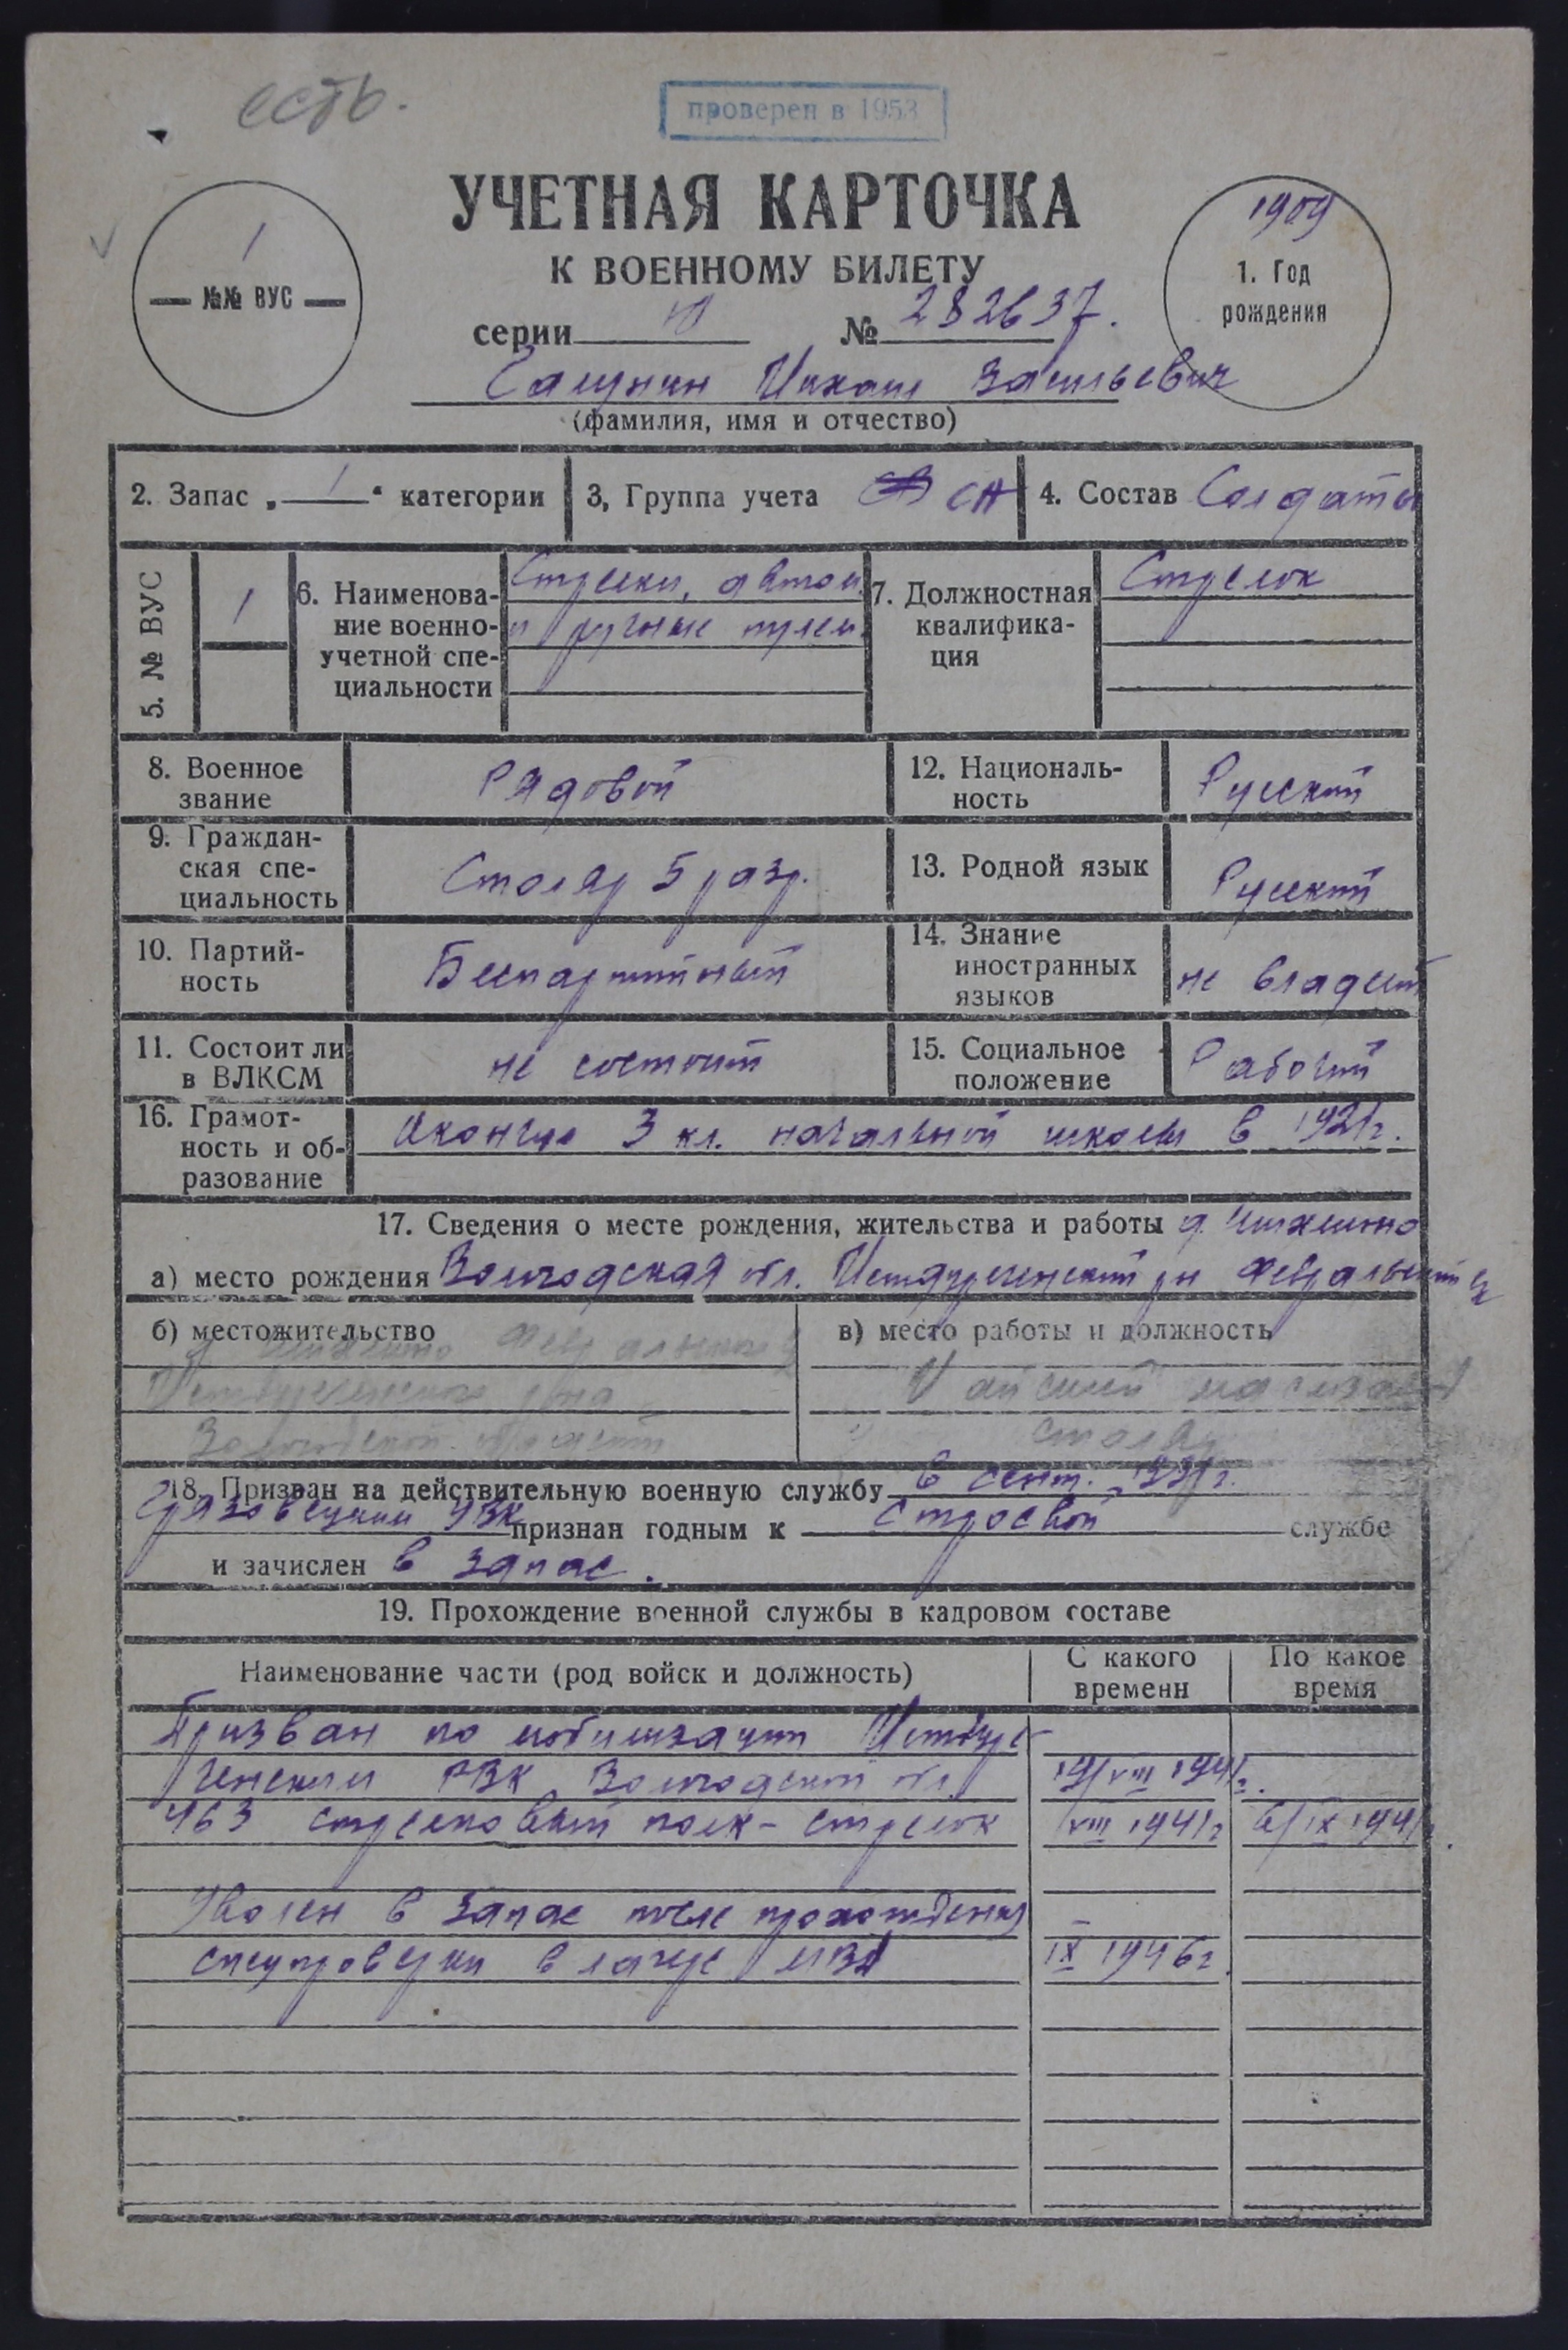 есть.
проверен в 1953
УЧЕТНАЯ КАРТОЧКА
К ВОЕННОМУ БИЛЕТУ
1
№№ ВУС
1909
1. Год
рождения
серии № 282637.
Васильевич
(фамилия, имя и отчество)
2. Запас „ 1 “ категории
3, Группа учета СН
4. Состав Солдаты
5. № ВУС
1
6. Наименова-
ние военно-
учетной спе-
циальности
Стрелки, автом.
и ручные пулем.
7. Должностная
квалифика-
ция
Стрелок
8. Военное
звание
Рядовой
12. Националь-
ность
Русский
9. Граждан-
ская спе-
циальность
Столяр 5 разр.
13. Родной язык
Русский
10. Партий-
ность
Беспартийный
14. Знание
иностранных
языков
не владеет
11. Состоит ли
в ВЛКСМ
не состоит
15. Социальное
положение
Рабочий
16. Грамот-
ность и об-
разование
Окончил 3 кл. начальной школы в 1921г.
17. Сведения о месте рождения, жительства и работы д.
а) место рождения Вологодская обл. Междуреченский рн Февральский
б) местожительство
Междуреченского рна
Вологодской области
в) место работы и должность
столяр
18. Призван на действительную военную службу в сент. 1931г.
Грязовецким РВК признан годным к строевой службе
и зачислен в запас.
19. Прохождение военной службы в кадровом составе
Наименование части (род войск и должность)
С какого
времени
По какое
время
Призван по мобилизации Междуре-
ченским РВК Вологодской обл. 19/VIII 1941г.
463 стрелковый полк - стрелок VIII 1941г 6/IX 1941г.
Уволен в запас после прохождения
спецпроверки в лагере МВД IX 1946г.